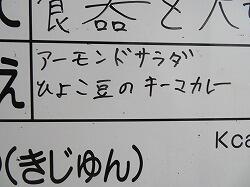 食器と
え
アーモンドサラダ
ひよこ豆のキーマカレー
Kca
(きじゅん)